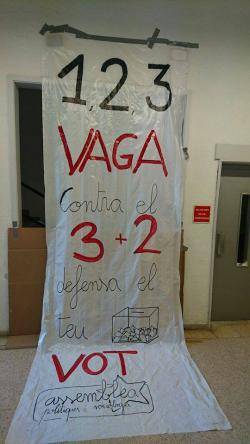 1, 2, 3
VAGA
Contra el
3 + 2
defensa el
teu
VOT
assemblea
polítiques i sociologia